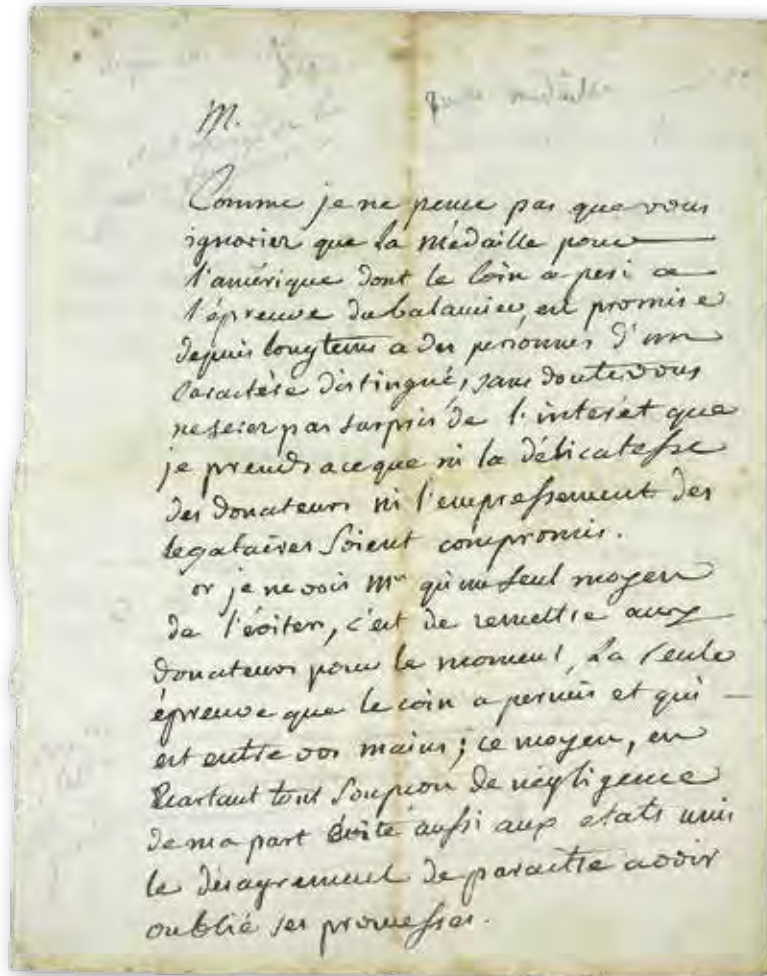 médaille
M.
Comme je ne pense pas que vous
ignoriez que la médaille pour
l'amérique dont le Coin a peri a
l'épreuve du balancier, est promise
depuis longtems a des personnes d'un
Caractère distingué, sans doute vous
ne serez pas surpris de l'intérêt que
je prends a ce que ni la délicatesse
des donateurs ni l'empressement des
legataires soient compromis.
or je ne vois Mr qu'un seul moyen
de l'éviter, c'est de remettre aux
donateurs pour le moment, La seule
épreuve que le coin a permis et qui
est entre vos mains; ce moyen, en
Ecartant tout soupçon de négligence
de ma part évite aussi aux etats unis
le désagrement de paraître avoir
oublié ses promesses.